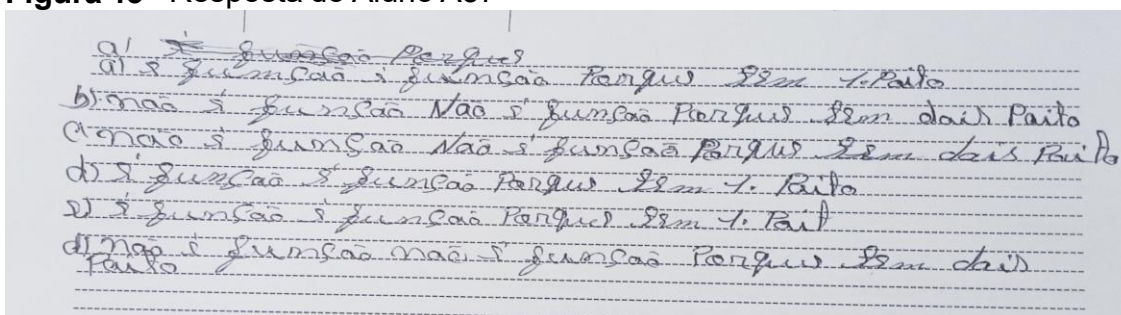 Figura 18 - Resposta do Aluno A8:
a) É função Porque
a) é função é função Porque tem 1. Paito
b) não é função Não é função Porque tem dois Paito
c) não é função Não é função Porque tem dois Paito
d) é função é função Porque tem 1. Paito
e) é função é função Porque tem 1. Pait
d) não é função não é função Porque tem dois
Paito